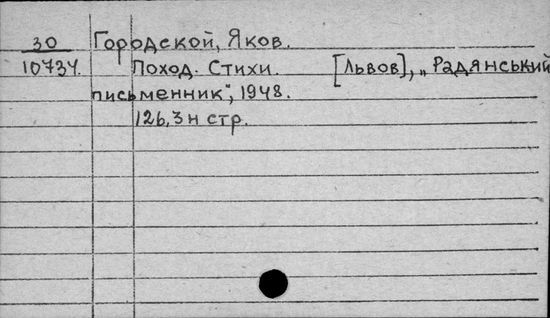 30 Городской, Яков.
10734. Поход. Стихи. [Львов], „Радянський
письменник", 1948.
126, 3 н стр.